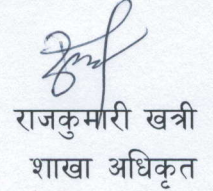 राजकुमारी खत्री
शाखा अधिकृत